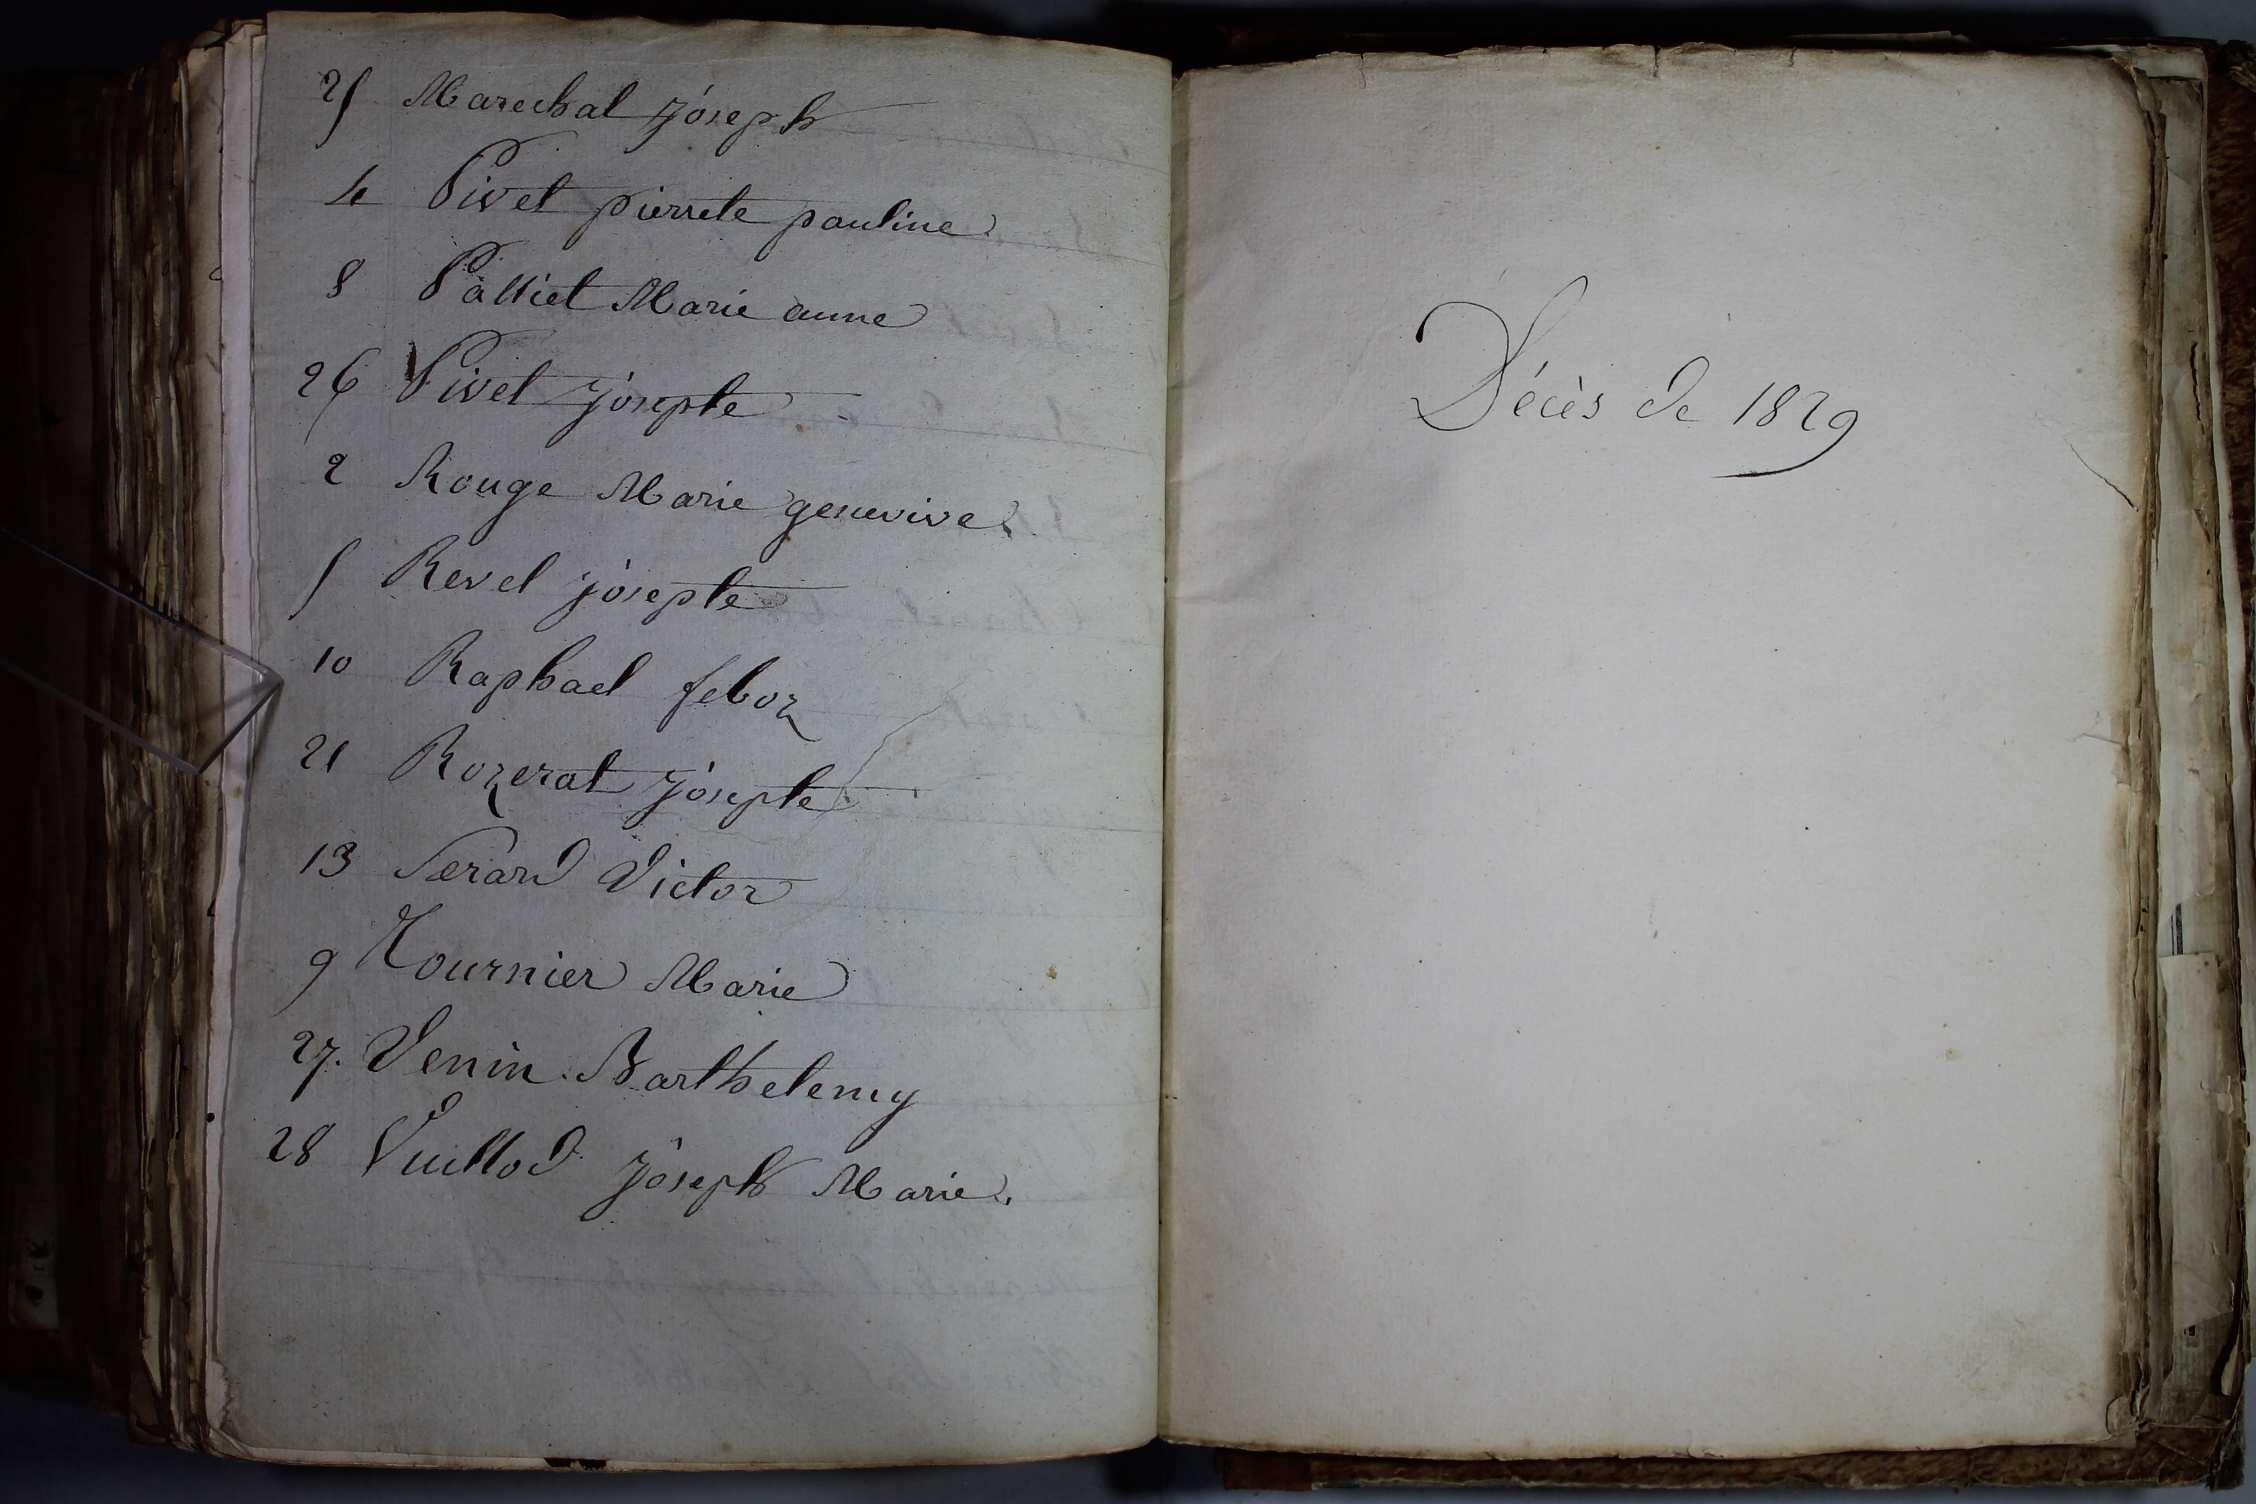 25 Marechal joseph
4 Pivet pierrete pauline
8 Palliet Marie anne
26 Pivet josephte
2 Rouge Marie genevive
5 Revel josephte
10 Raphael febor
21 Rozerat josephte
13 Serard Victor
9 Tournier Marie
27. Venin Barthelemy
28 Vuillod joseph Marie.
Décès de 1829